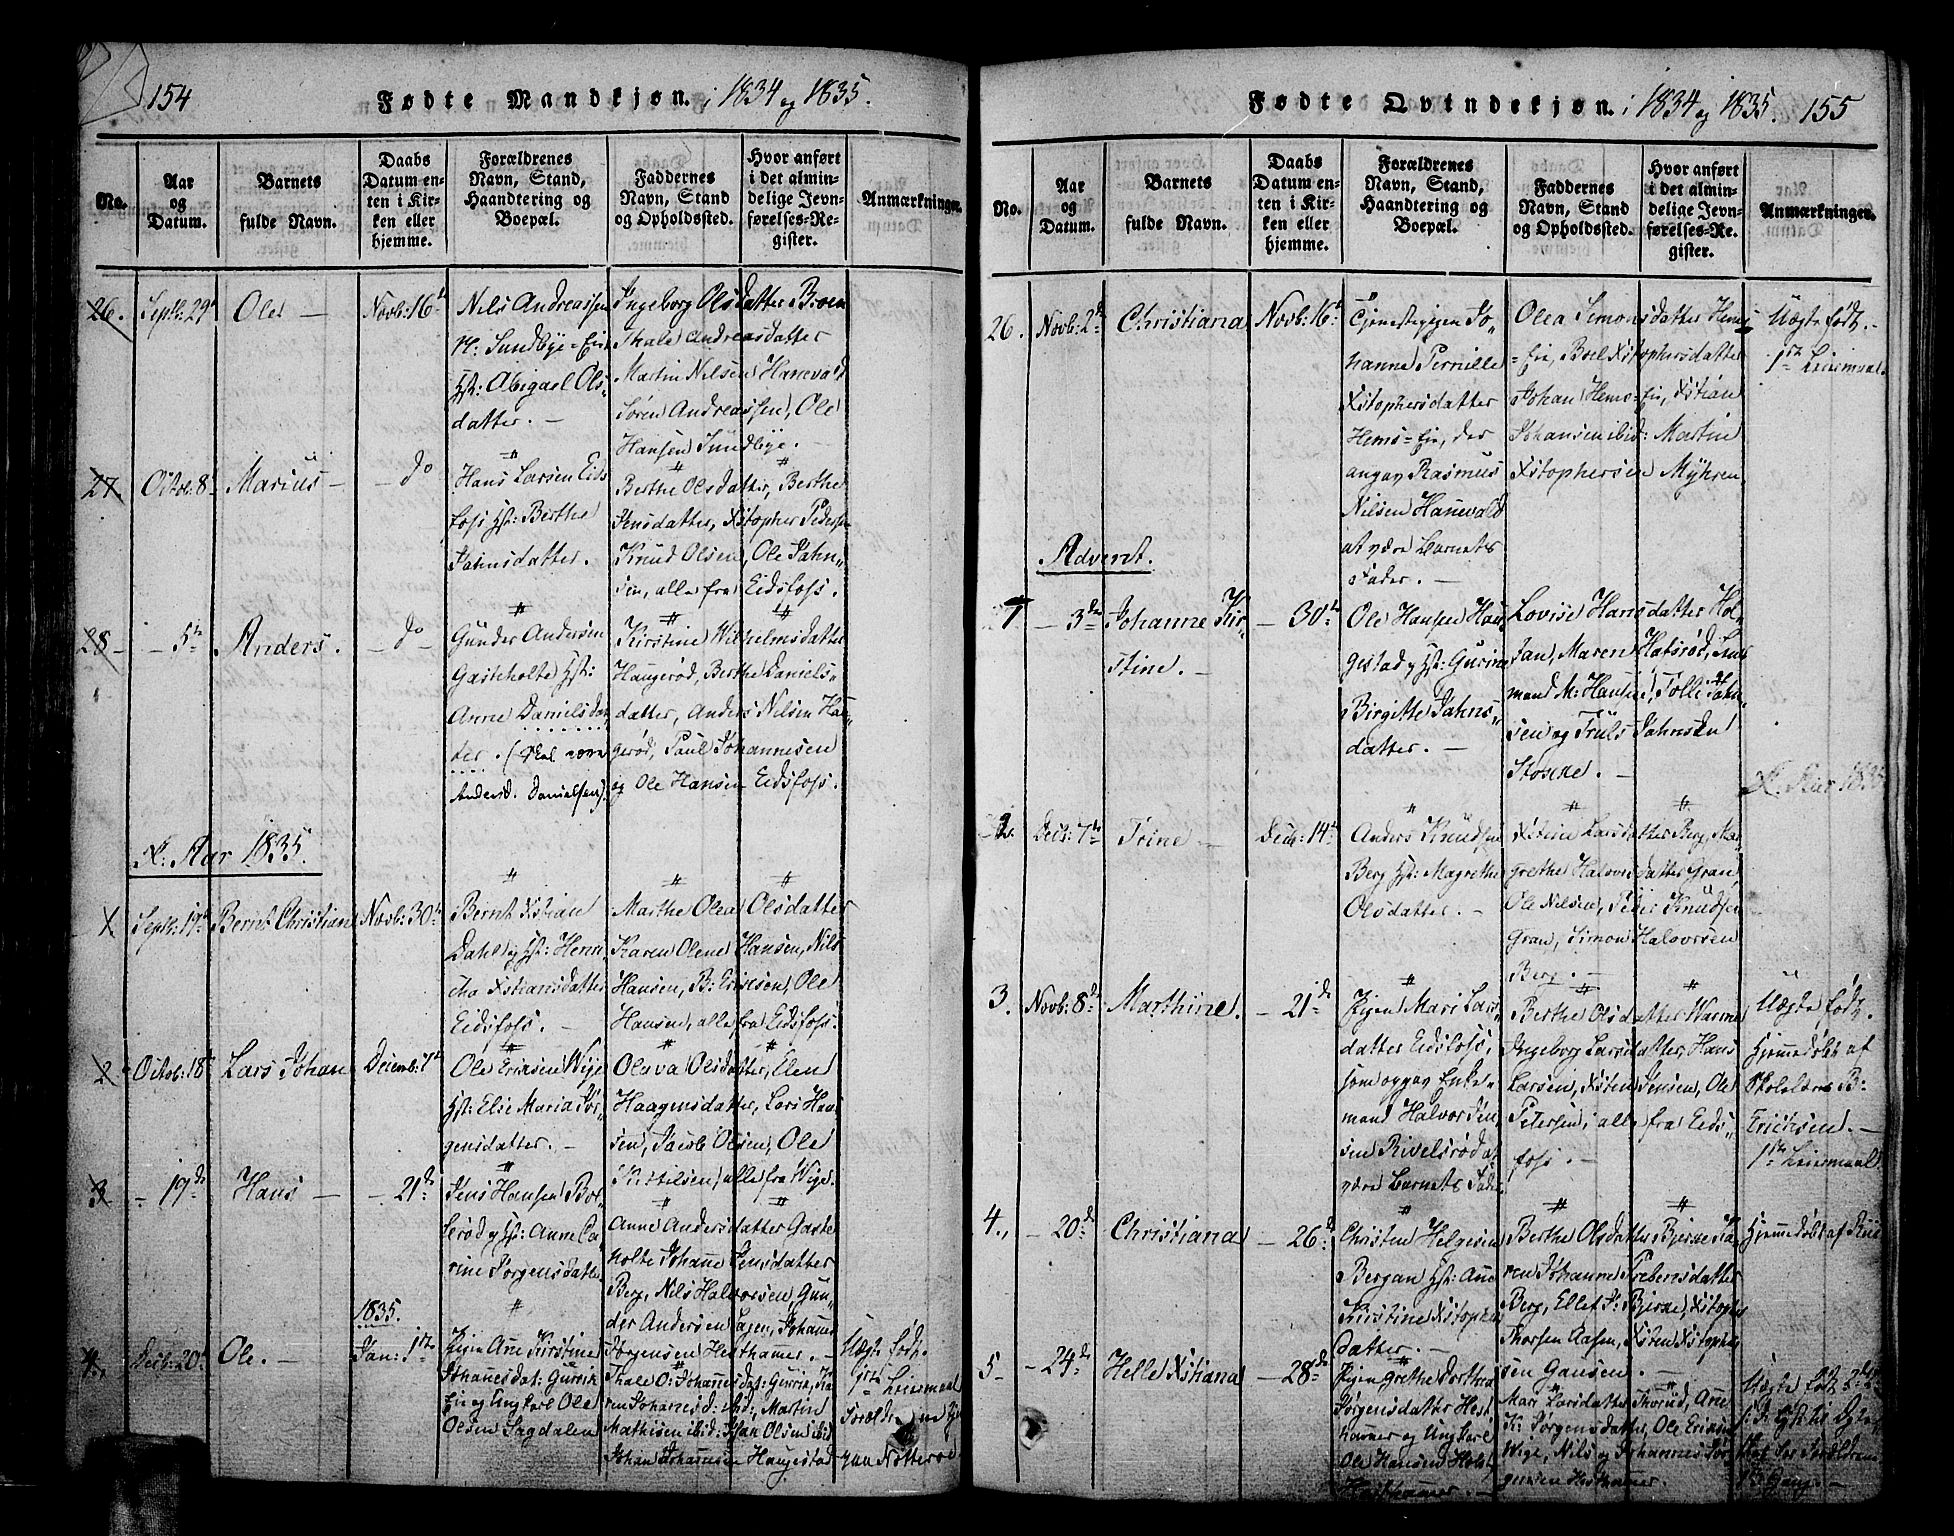 154
Fødte Mandkjøn. i 1834 og 1835.
No.
Aar
og
Datum.
Barnets
fulde Navn.
Daabs
Datum en-
ten i Kir-
ken eller
hjemme.
Forældrenes
Navn, Stand,
Haandtering og
Boepæl.
Faddernes
Navn, Stand
og Opholdssted.
Hvor anført
i det almin-
delige Jevn-
førelses-Re-
gister.
Anmærkninger.
26.
Septb: 29
Ole
Novb: 16
Nils Andreassen
Sundbye-Eie
Hst: Abigael Ols-
datter.
Ingeborg Olsdatter Broen
Thale Andreasdatter
Martin Nilsen Hanevald
Søren Andreassen, Ole
Hansen Sundbye.
27
Octob: 8
Marius
do
Hans Larsen Eids
foss Hst: Berthe
Jahnsdatter.
Berthe Olsdatter, Berthe
Jensdatter, Xstopher Peders
Knud Olsen, Ole Jahn-
sen, alle fra Eidsfoss.
28
5
Anders.
do
Gunder Andersen
Gasteholte Hst:
Anne Danielsdat
ter. (Skal være
Andersd. Danielsen).
Kirstine Wilhelmsdatter
Haugerød, Berthe Daniels-
datter, Anders Nilsen Hau-
gerød, Paul Johannesen
og Ole Hansen Eidsfoss.
K: Aar 1835.
1
Septb: 17
Bernt Christian
Novb: 30
Bernt Xstian
Dahl og Hst: Henri-
cha Xstiansdatter
Eidsfoss.
Marthe Olea Olsdatter
Karen Olene Hansen, Nils
Hansen, B: Ericsen, Ole
Hansen, alle fra Eidsfoss.
2
Octob: 18
Lars Johan
Decemb: 7
Ole Ericsen Wige
Hst: Else Maria Jør-
gensdatter.
Olava Olsdatter, Elen
Haagensdatter, Lars Han
sen, Jacob Olsen, Ole
Kittilsen, alle fra Wige.
3
17
Hans
21
Jens Hansen Bol-
lerød og Hst: Anne Ca-
rine Jørgensdatter
Anne Andersdatter Gaste
holte Johanne Jensdatter
Berg, Nils Halvorsen, Gun-
der Andersen Johannes
Jørgensen Hesthamer.
4.
Decb: 20
Ole.
1835.
Jan: 1
Pigen Ane Kirstine
Johannesdat:
Eie og Ungkarl Ole
Olsen Sagdalen
Thale O: Johannesdat:
ren Johannesd: ibid:, Martin
Mathisen ibid: Johan Olsen ibid
Johan Johannesen Haugestad
Uægte født.
1ste Leiermaal
155
Fødte Qvindekjøn. i 1834 og 1835.
No.
Aar
og
Datum.
Barnets
fulde Navn.
Daabs
Datum en-
ten i Kir-
ken eller
hjemme.
Forældrenes
Navn, Stand,
Haandtering og
Boepæl.
Faddernes
Navn, Stand
og Opholdssted.
Hvor anført
i det almin-
delige Jevn-
førelses-Re-
gister.
Anmærkninger.
26.
Novb: 2
Christiana
Novb: 16
Tjenestepigen Jo-
hanne Pernille
Xstophersdatter
Hems-Eie, der
angav Rasmus
Nilsen Hanevald
at være Barnets
Fader.
Olea Simonsdatter Hems
-Eie, Boel Xstophersdatter
Johan Hems-Eie, Xstian
Johansen ibid: Martin
Xstophersen Myhren.
Uægte født.
1ste Leiermaal.
Advent.
1
3
Johanne Kir-
stine.
30
Ole Hansen Hau-
gestad og Hst: Gurine
Birgitte Jahns-
datter.
Lovise Hansdatter Hol-
Jan, Maren Hatsrød,
mand M: Hansen, Tolle Jahn-
sen og Truls Jahnsen
K: Aar 1835
2.
Decb: 7
Trine
Decb: 14
Anders Knudsen
Berg Hst: Magrethe
Olsdatter.
Xstine Larsdatter Berg, Ma-
grethe Halvorsdatter Gran,
Ole Nilsen, Peder Knudsen
Gran, Simon Halvorsen
Berg.
3.
Novb: 8
Marthine.
21
Pigen Mari Lars-
datter Eidsfoss,
som opgav Enke-
mand Halvor Jen
sen Rivelsrød at
være Barnets Fader
Berthe Olsdatter
Ingeborg Larsdatter, Hans
Larsen, Xsten Jensen, Ole
Petersen, alle fra Eids-
foss.
Uægte født.
Hjemmedøbt af
Skolelærer B:
Erichsen.
1ste Leiermaal.
4.,
20
Christiana
26
Christen Helgesen
Bergan Hst: Ane
Kirstine Xstophers
datter.
Berthe Olsdatter Bjerke
ren Johanne Prebensdatter
Berg, Ellef J: Bjerke, Xstopher
Thorsen Aasen, Xsten Xstopher
sen Gausen.
Hjemmedøbt af
5
24
Helle Xstiana
28
Pigen Grethe Dorthea
Jørgensdatter Hest-
hamer og Ungkarl
Ole Hansen Holst
Hesthamer.
Mari Larsdatter Thorud, Ane
K: Jørgensdatter, Ole Ericsen
Wige, Nils og Johannes Jør-
gensen Hesthamer.
Uægte født